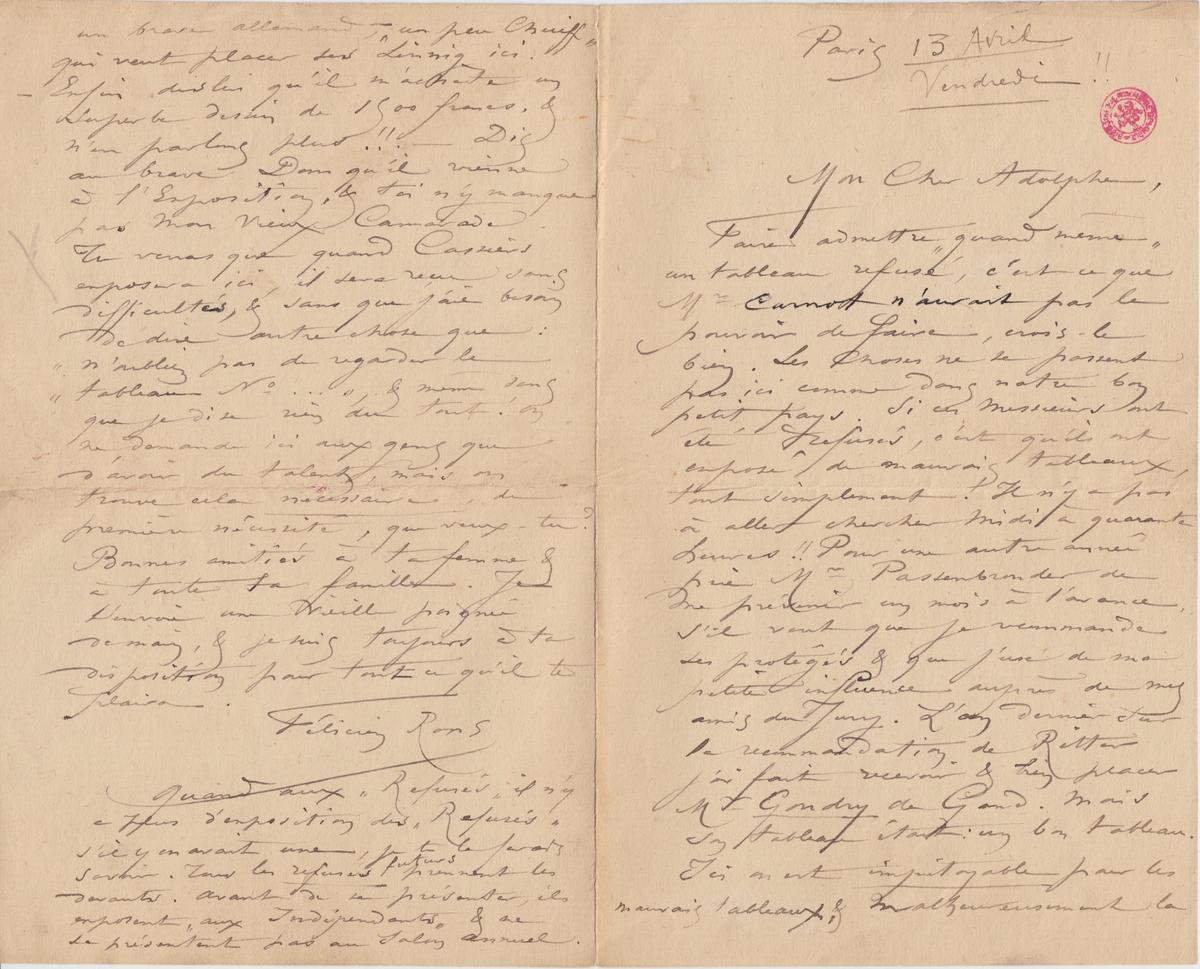 Paris 13 Avril
Vendredi !!
Mon Cher Adolphe,
Faire admettre „quand même„
un tableau refusé, c'est ce que
Mr Carnot n'aurait pas le
pouvoir de faire, crois-le
bien. Les choses ne se passent
pas ici comme dans notre bon
petit pays. Si ces Messieurs ont
été refusés, c'est qu'ils ont
exposé de mauvais tableaux,
tout simplement ! Il n'y a pas
à aller chercher midi à quarante
heures !! Pour une autre année
prie Mr Passenbronder de
me prévenir un mois à l'avance,
s'il veut que je recommande
ses protégés & que j'use de ma
petite influence auprès de mes
amis du Jury. L'an dernier sur
la recommandation de Ritter
j'ai fait recevoir & bien placer
Mr Gondry de Gand. Mais
son tableau était : un bon tableau.
Ici on est impitoyable pour les
mauvais tableaux, & malheureusement la
un brave allemand, un peu „Chuiff„
qui veut placer ses Linnig ici.
Enfin dis lui qu'il m'achète un
superbe dessin de 1500 francs, &
n'en parlons plus !!! – Dis
au brave Dom qu'il vienne
à l'Exposition, & toi n'y manque
pas mon vieux Camarade.
Tu verras que quand Cassiers
exposera ici, il sera reçu sans
difficultés, & sans que j'aie besoin
de dire autre chose que :
„ n'oubliez pas de regarder le
„ tableau No ....„, & même sans
que je dise rien du tout ! on
ne demande ici aux gens que
d'avoir du talent, mais on
trouve cela nécessaire, de
première nécessité, que veux-tu ?
Bonnes amitiés à ta femme &
à toute ta famille. Je
t'envoie une vieille poignée
de main, & je suis toujours à ta
disposition pour tout ce qu'il te
plaira.
Félicien Rops
Quand aux „Refusés„ il n'y
a plus d'exposition des „Refusés„
s'il y en avait une, je te le ferais
savoir. Tous les refusés futurs prennent les
devants. Avant de se présenter, ils
exposent „aux Indépendants„ & ne
se présentent pas au Salon annuel.